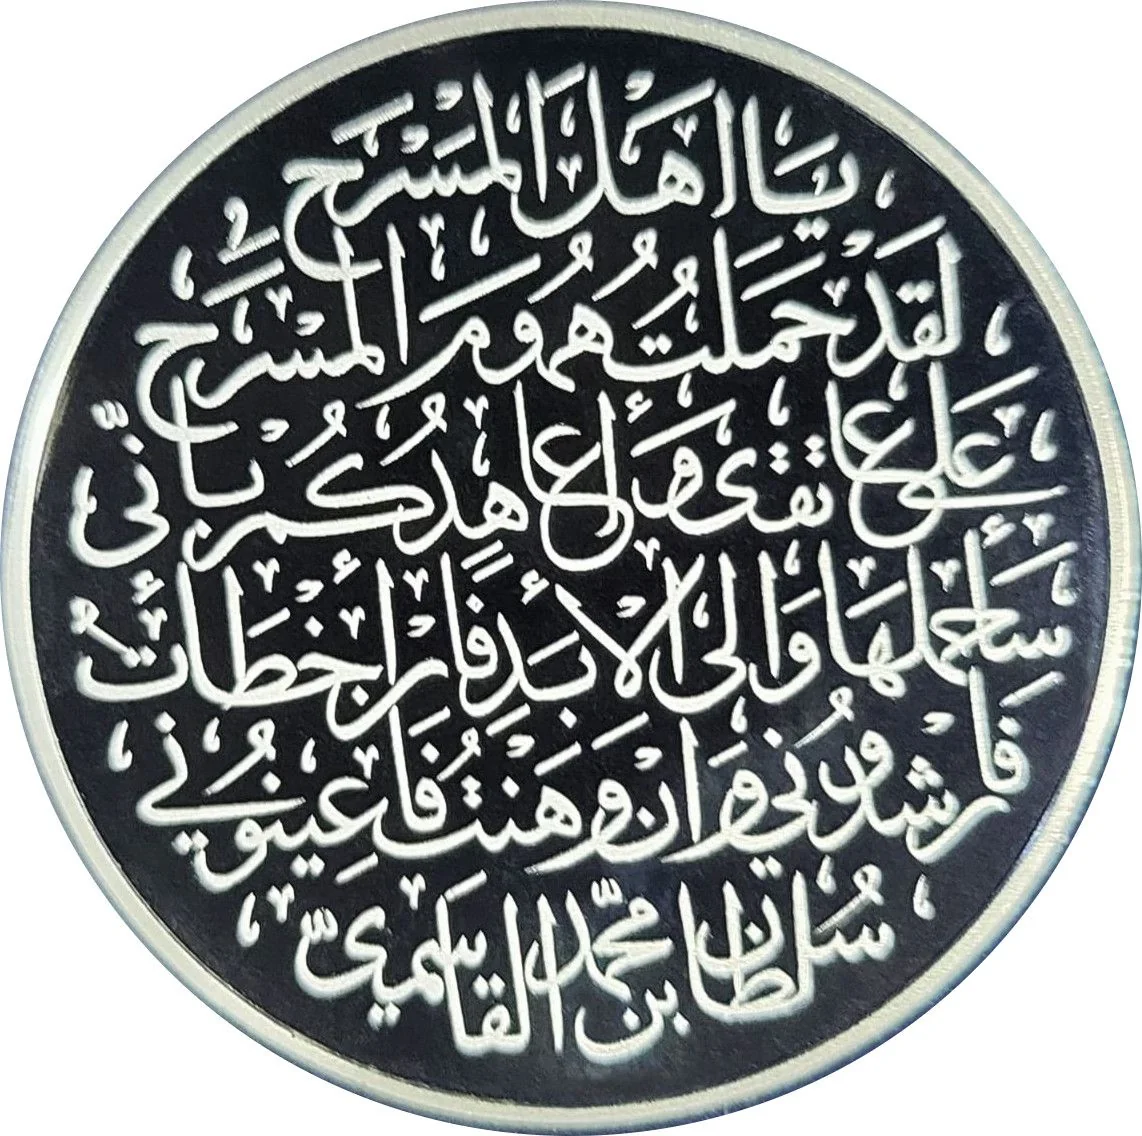 يا أهل المسرح
لقد حملت هموم المسرح
على عاتقي وأعاهدكم بأني
سأحملها وإلى الأبد فإن أخطأت
فأرشدوني وإن وهنت فأعينوني
سلطان بن محمد القاسمي